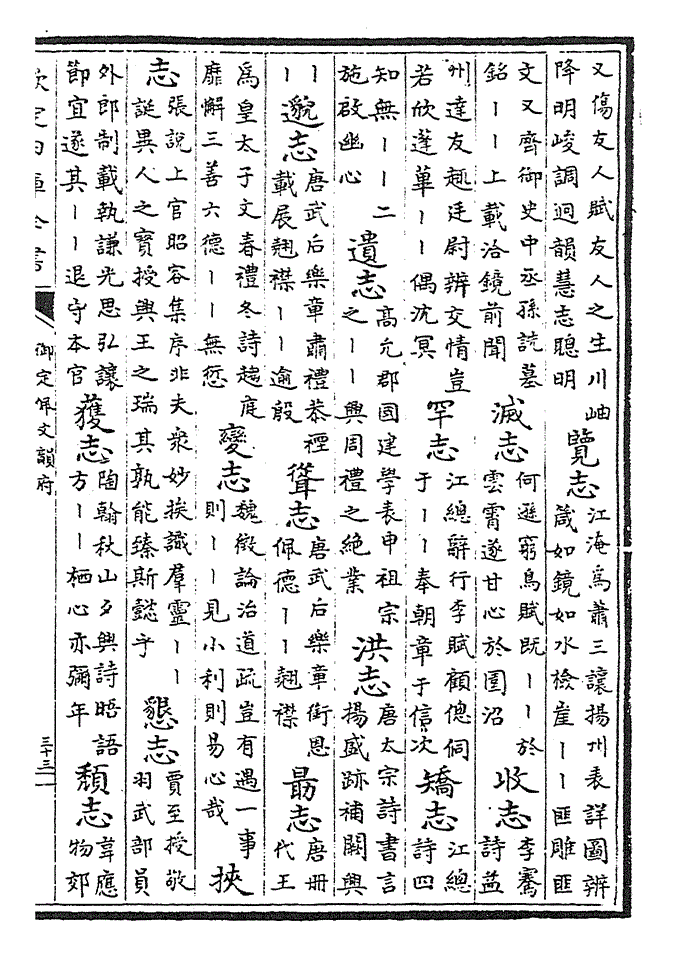 又傷友人賦友人之生川岫
降明峻調迥韻慧志聰明
覽志
江淹為蕭三讓揚州表詳圖辨
箴如鏡如水檢崖丨丨匪雕匪
文又齊御史中丞孫詵墓
銘丨丨上載洽鏡前聞
滅志
何遜窮鳥賦既丨丨於
雲霄遂甘心於園沼
收志
李騫
詩益
州達友趨廷尉辨交情豈
若欣蓬蓽丨丨偶沈冥
罕志
江總辭行李賦顧倥侗
于丨丨奉朝章于信次
矯志
江總
詩四
知無丨丨二
施啟幽心
遺志
高允郡國建學表申祖宗
之丨丨興周禮之絕業
洪志
唐太宗詩書言
揚盛跡補闕興
丨
丨
邈志
唐武后樂章肅禮恭禋
載展翹襟丨丨逾殷
聳志
唐武后樂章銜恩
佩德丨丨翹襟
最志
唐冊
代王
為皇太子文春禮冬詩趨庭
靡懈三善六德丨丨無愆
變志
魏徵論治道疏豈有遇一事
則丨丨見小利則易心哉
挾
志
張說上官昭容集序非夫衆妙挨識羣靈丨丨
誕異人之寶授興王之瑞其孰能臻斯懿乎
懇志
賈至授敬
羽武部員
外郎制載執謙光思弘讓
節宜遂其丨丨退守本官
獲志
陶翰秋山夕興詩晤語
方丨丨栖心亦彌年
頹志
韋應
物郊
欽定四庫全書
御定佩文韻府
三十三